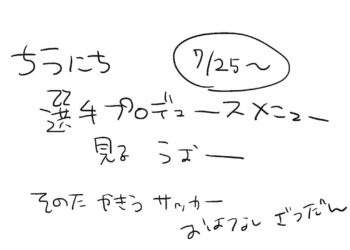 ちうにち
7/25～
選手プロデュースメニュー
見る らぶー
そのた やきう サッカー
おはなし ざつだん